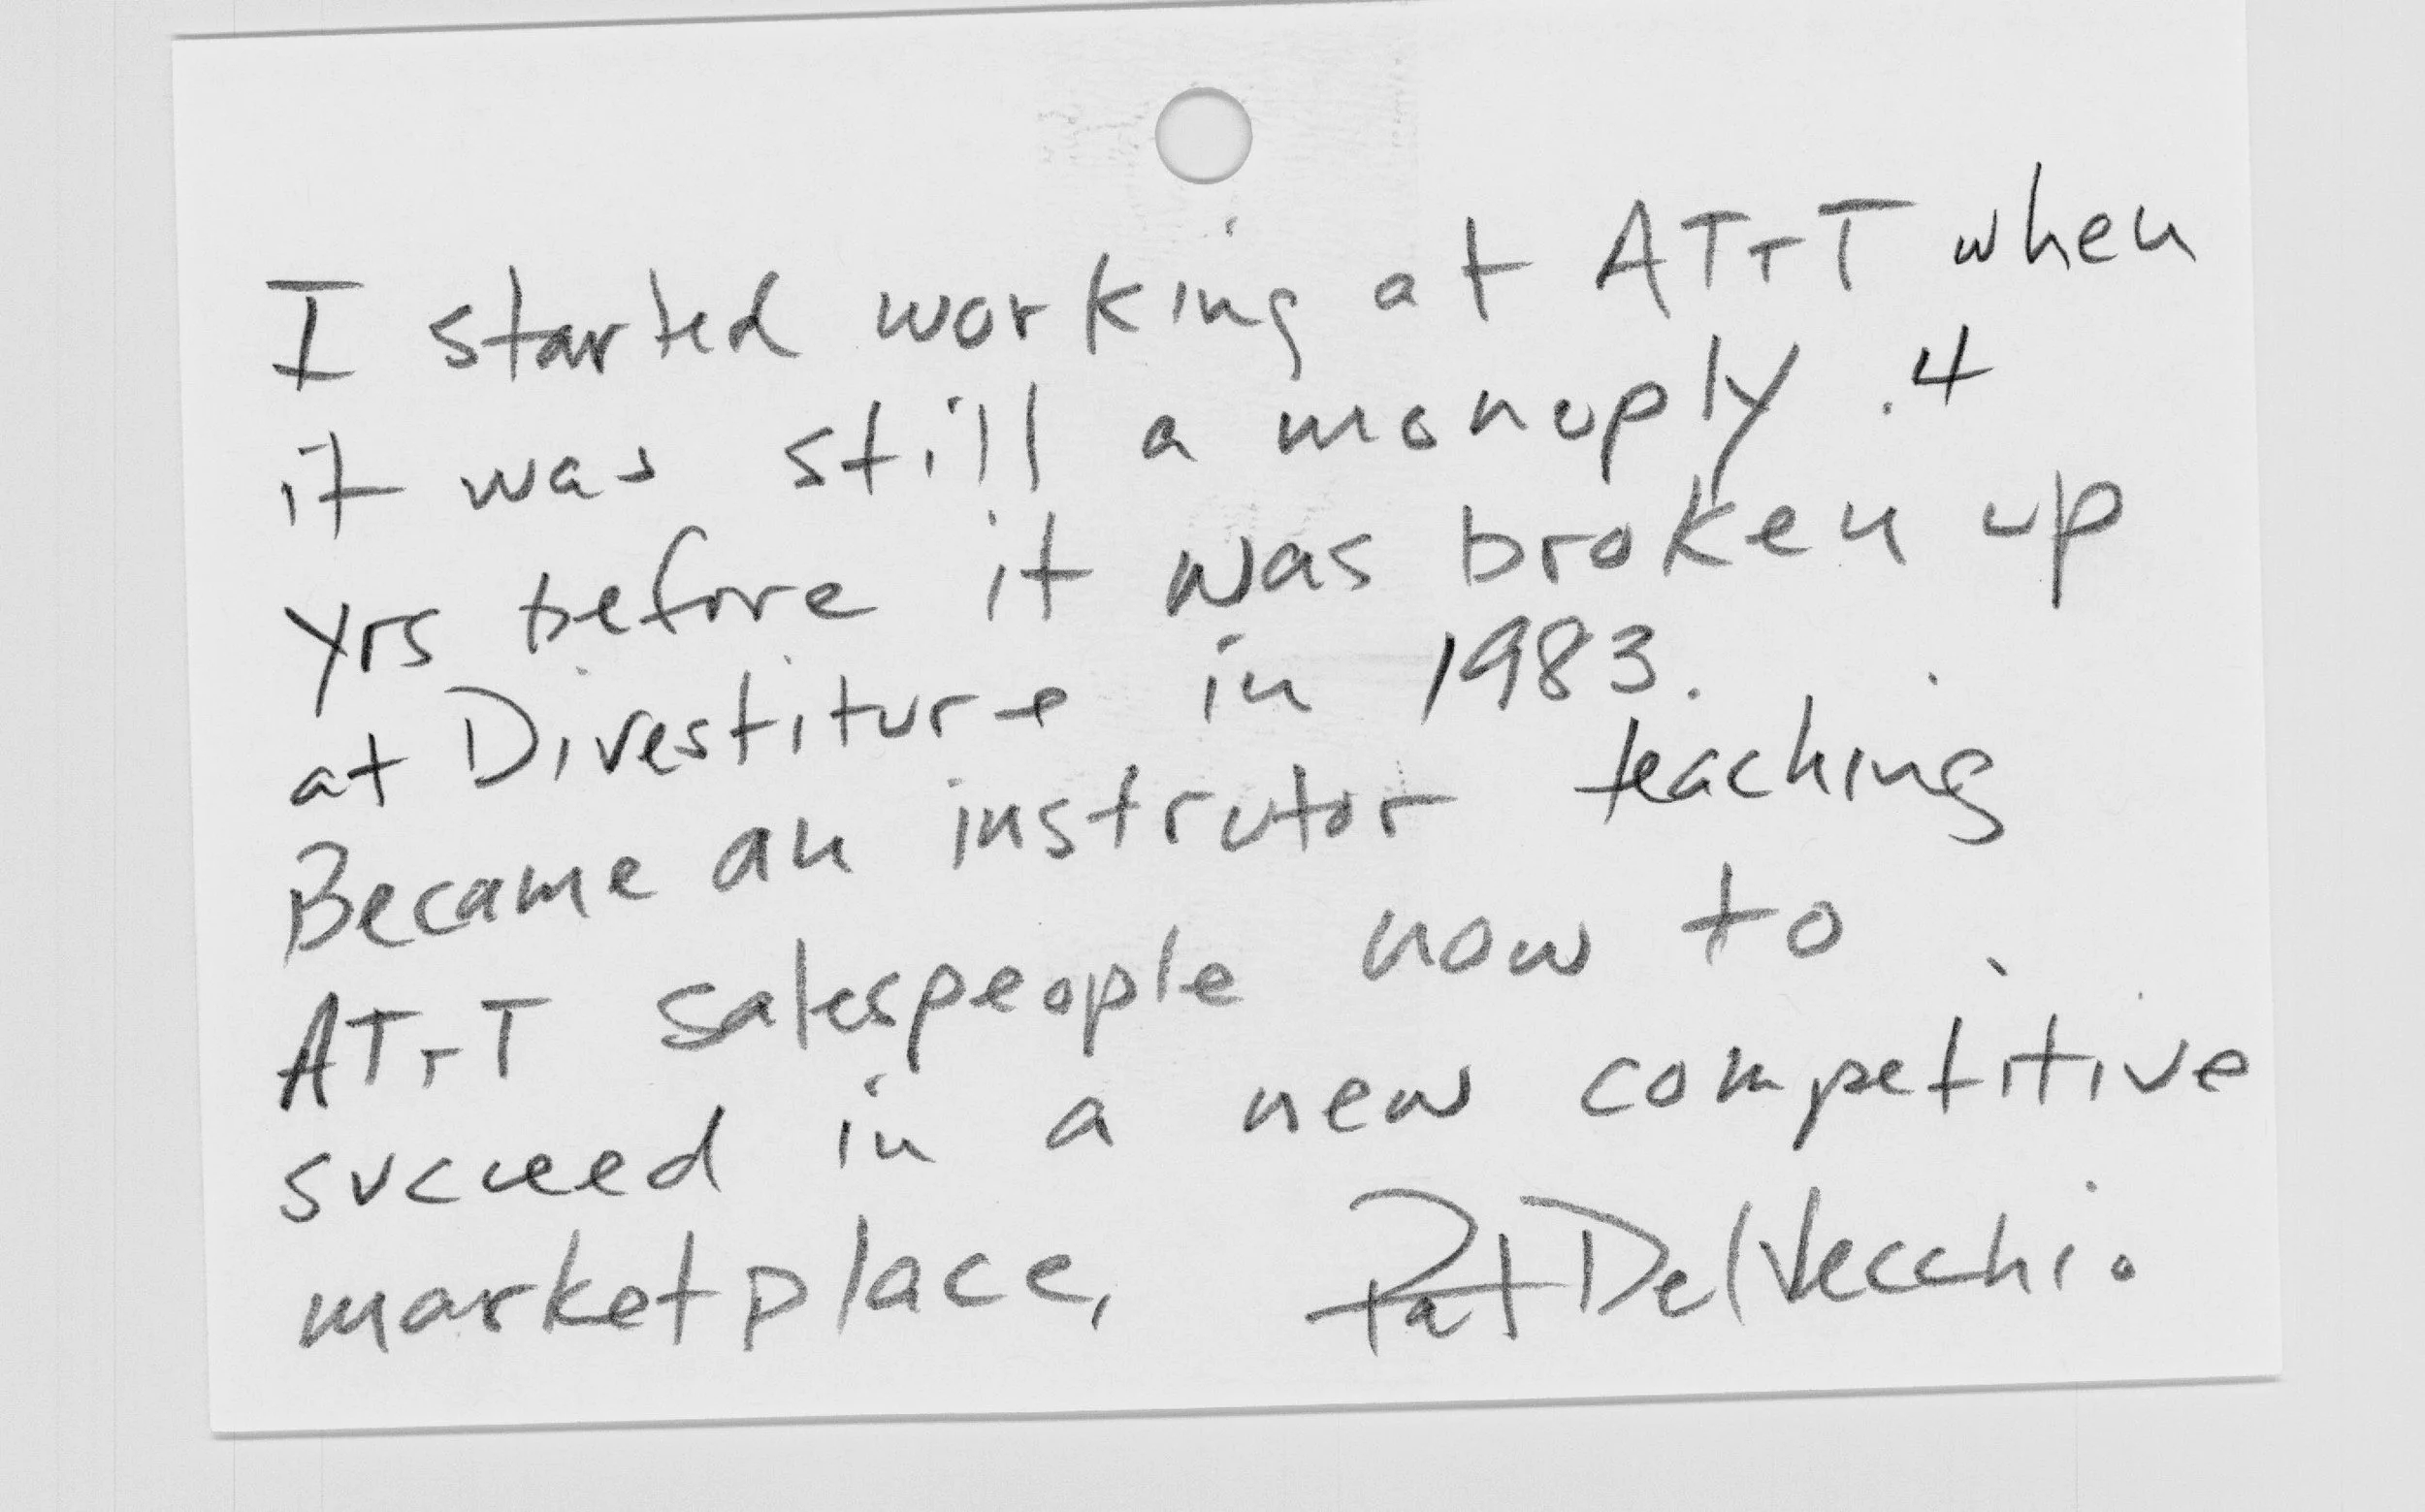 I started working at AT+T when
it was still a monoply. 4
yrs before it was broken up
at Divestiture in 1983.
Became an instrutor teaching
AT+T salespeople how to
succeed in a new competitive
marketplace. Pat DelVecchio